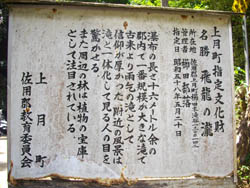 上月町指定文化財
名勝 飛龍の瀧
所在地 佐用郡上月町
管理者
指定日 昭和五十八年五月二十日
瀑布の長さ十六メートル余の
郡内で一番規模が大きな滝で
古来より雨乞の滝として
信仰が厚かった 附近の風景は
滝と一体化して見る人の目を
驚かせる
また周辺の林は植物の宝庫
として注目されている
上月町
佐用郡教育委員会